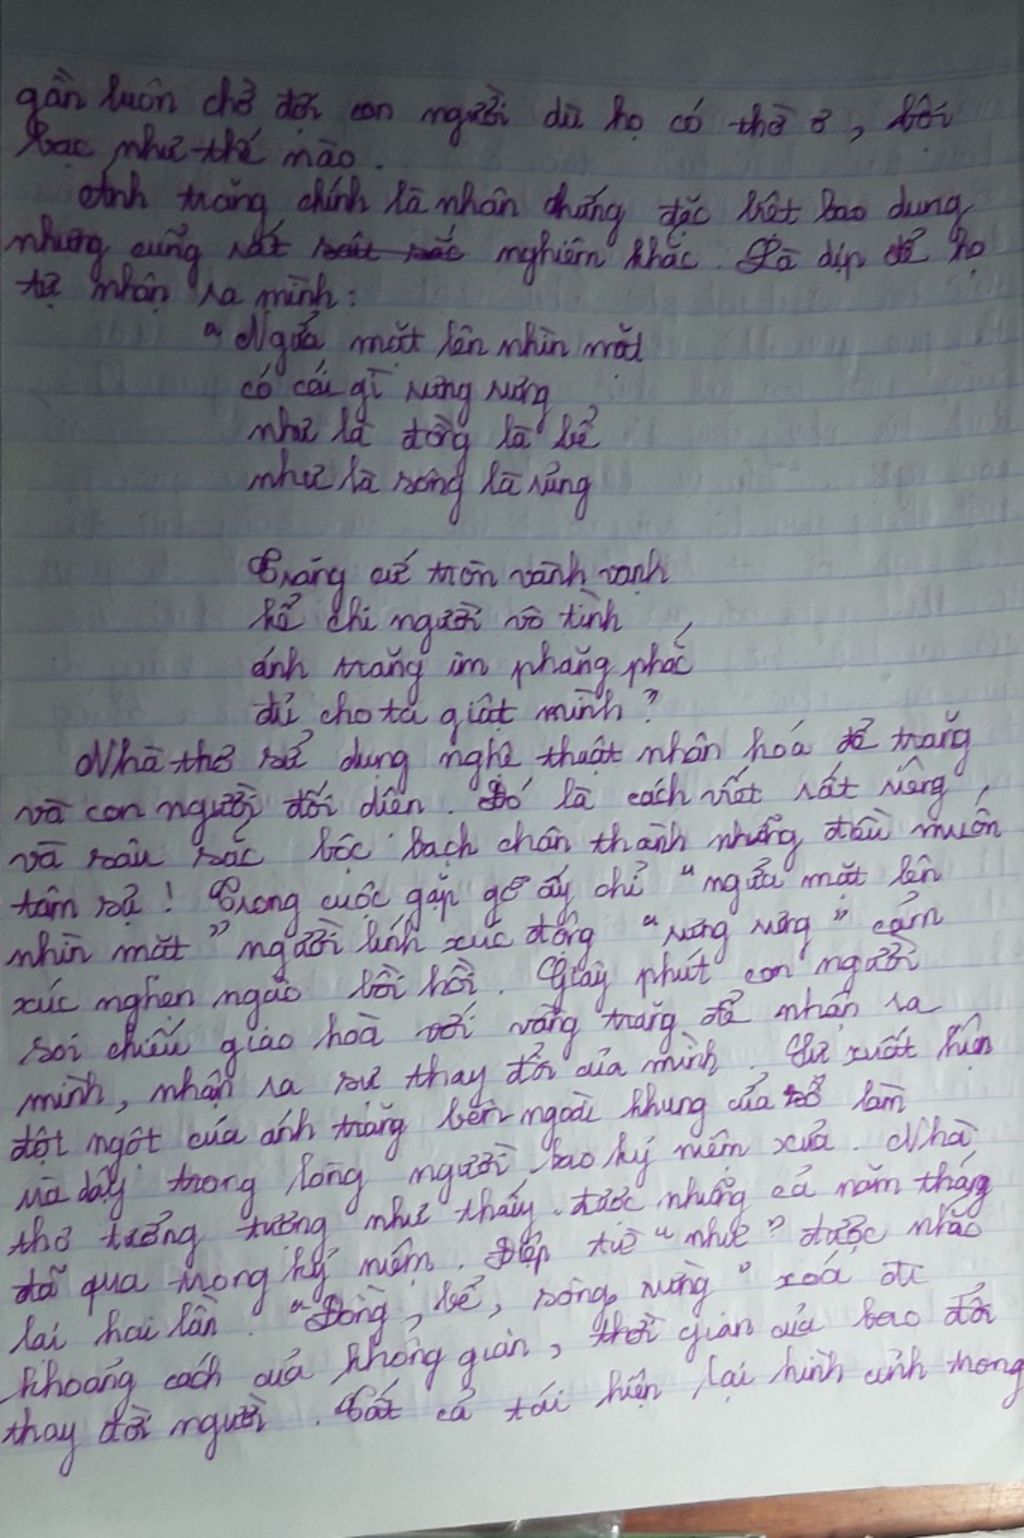 gần luôn chờ đợi con người dù họ có thờ ơ, bội
bạc như thế nào.
Ánh trăng chính là nhân chứng đặc biệt bao dung
nhưng cũng rất nghiêm khắc. Là dịp để họ
tự nhận ra mình:
"Ngửa mặt lên nhìn mặt
có cái gì rưng rưng
như là đồng là bể
như là sông là rừng
Trăng cứ tròn vành vạnh
kể chi người vô tình
ánh trăng im phăng phắc
đủ cho ta giật mình"
Nhà thơ sử dụng nghệ thuật nhân hoá để trăng
và con người đối diện. Đó là cách viết rất riêng,
và sâu sắc bộc bạch chân thành những đều muốn
tâm sự! Trong cuộc gặp gỡ ấy chỉ "ngửa mặt lên
nhìn mặt" người lính xúc động "rưng rưng" cảm
xúc nghẹn ngào bồi hồi. Giây phút con người
soi chiếu giao hoà với vầng trăng để nhận ra
mình, nhận ra sự thay đổi của mình. Sự xuất hiện
đột ngột của ánh trăng bên ngoài khung cửa sổ làm
ùa dậy trong lòng người bao kỷ niệm xưa. Nhà
thơ tưởng tượng như thấy được những cả năm tháng
đã qua trong ký niệm. Điệp từ "như" được nhắc
lại hai lần. "Đồng, bể, sông, rừng" xoá đi
khoảng cách của không gian, thời gian của bao đổi
thay đời người. Tất cả tái hiện lại hình ảnh trong